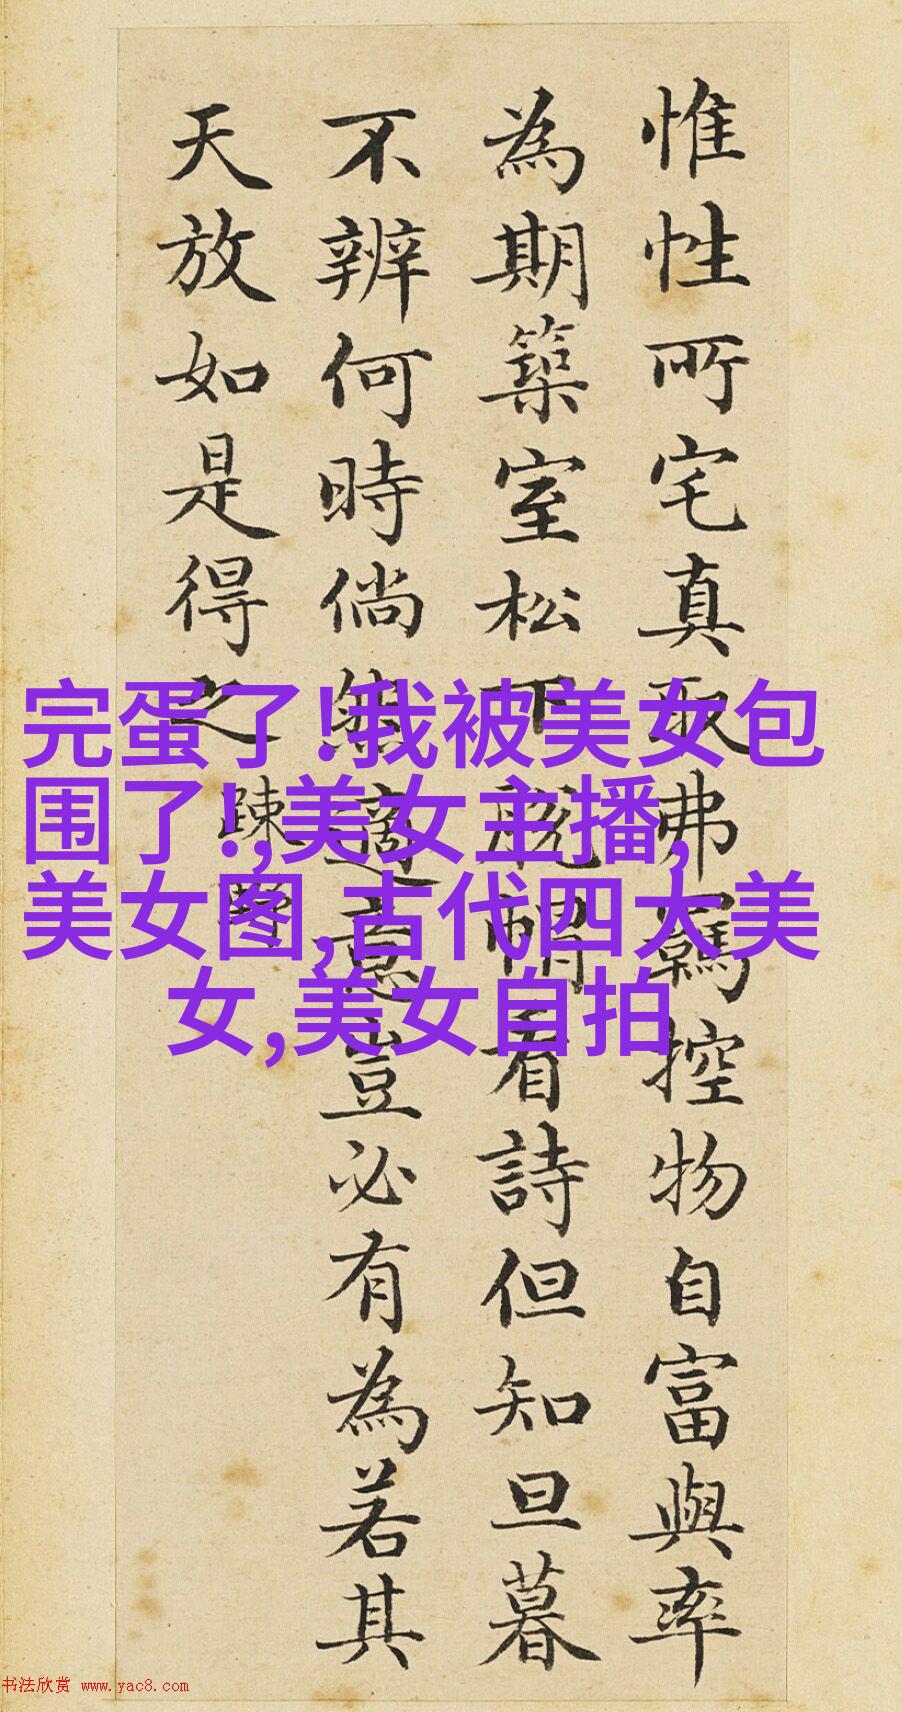 惟性所宅真取弗羁控物自富與率
為期築室松下脱帽看詩但知旦暮
不辨何時倘然適意豈必有為若其
天放如是得之
疎野
完蛋了!我被美女包
围了!,美女主播,
美女图,古代四大美
女,美女自拍
书法欣赏 www.yac8.com